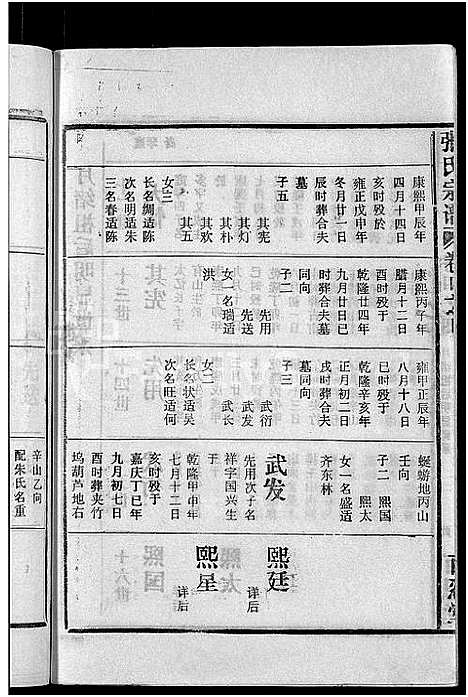 康熙甲辰年
四月十四日
亥时殁于
雍正戊申年
冬月廿一日
辰时葬合夫
墓
子五
其宪
其灯
其朴
其欢
其五
女三
长名绸适陈
次名明适朱
三名春适陈
康熙丙子年
腊月十二日
酉时殁于
乾隆廿四年
九月廿日巳
时葬合夫墓
同向
子二
先用
先送
女一名瑞适
洪
雍正甲辰年
八月十八日
巳时殁于
乾隆辛亥年
正月初二日
戌时葬合夫
墓同向
子三
武衍
武发
武长
女二
长名状适吴
次名旺适何
蜒蝣地丙山
壬向
子二 熙太
熙国
女一名盛适
齐东林
武发
先用次子名
祥字国兴生
于
乾隆甲申年
七月十二日
亥时殁于
嘉庆丁巳年
九月初七日
酉时葬夹竹
坞葫芦地右
熙廷
详后
熙星
详后
辛山乙向
配朱氏名重